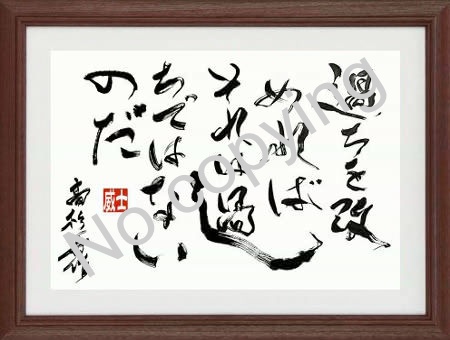 過ちを改
めれば
それは過
ちではない
のだ
高杉晋作
威士
No copying